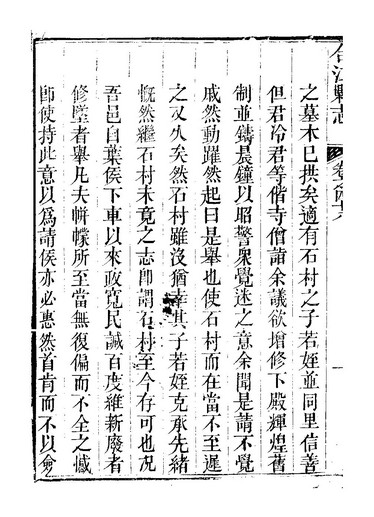 合江縣志
之墓木已拱矣適有石村之子若姪並同里信善
但君冷君等偕寺僧詣余議欲增修下殿輝煌舊
制並鑄晨鐘以昭警衆覺迷之意余聞是請不覺
戚然動躍然起曰是舉也使石村而在當不至遲
之又久矣然石村雖沒猶幸其子若姪克承先緒
慨然繼石村未竟之志卽謂石村至今存可也况
吾邑自葉侯下車以來政寬民誠百度維新廢者
修墜者舉凡夫帡幪所至當無復偏而不全之憾
卽使持此意以爲請侯亦必惠然首肯而不以余